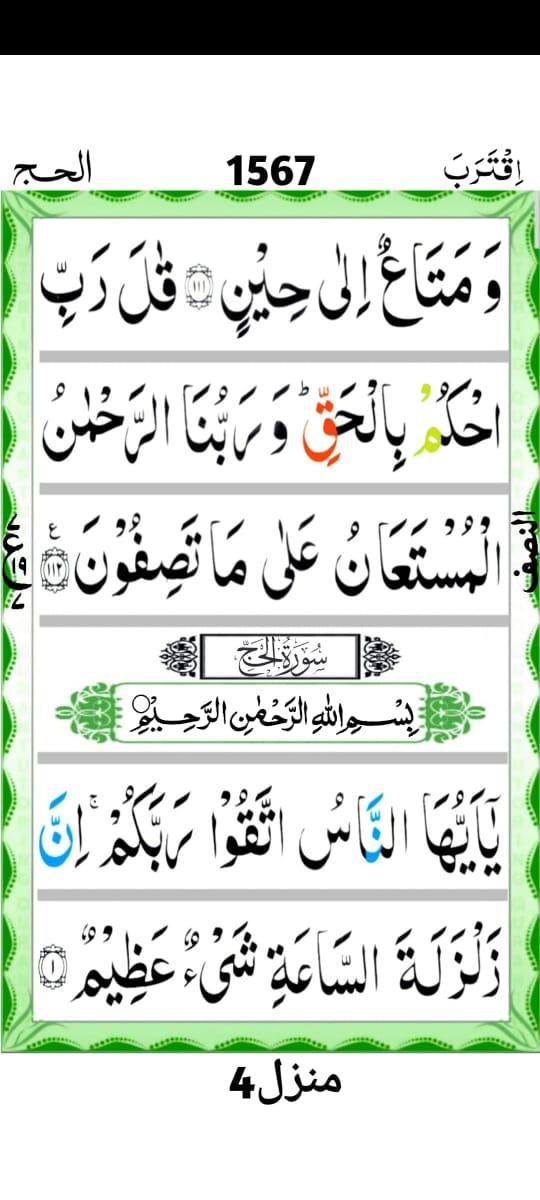 اِقْتَرَبَ 1567 الحج
وَ مَتَاعٌ اِلٰى حِيْنٍ ۝۱۱۱ قٰلَ رَبِّ
احْكُمْ بِالْحَقِّ ؕ وَ رَبُّنَا الرَّحْمٰنُ
الْمُسْتَعَانُ عَلٰى مَا تَصِفُوْنَ ۝۱۱۲ ع
النصف
سُوْرَةُ الْحَجِّ
بِسْمِ اللّٰهِ الرَّحْمٰنِ الرَّحِيْمِ
يٰۤاَيُّهَا النَّاسُ اتَّقُوْا رَبَّكُمْ ۚ اِنَّ
زَلْزَلَةَ السَّاعَةِ شَیْءٌ عَظِيْمٌ ۝۱
منزل 4